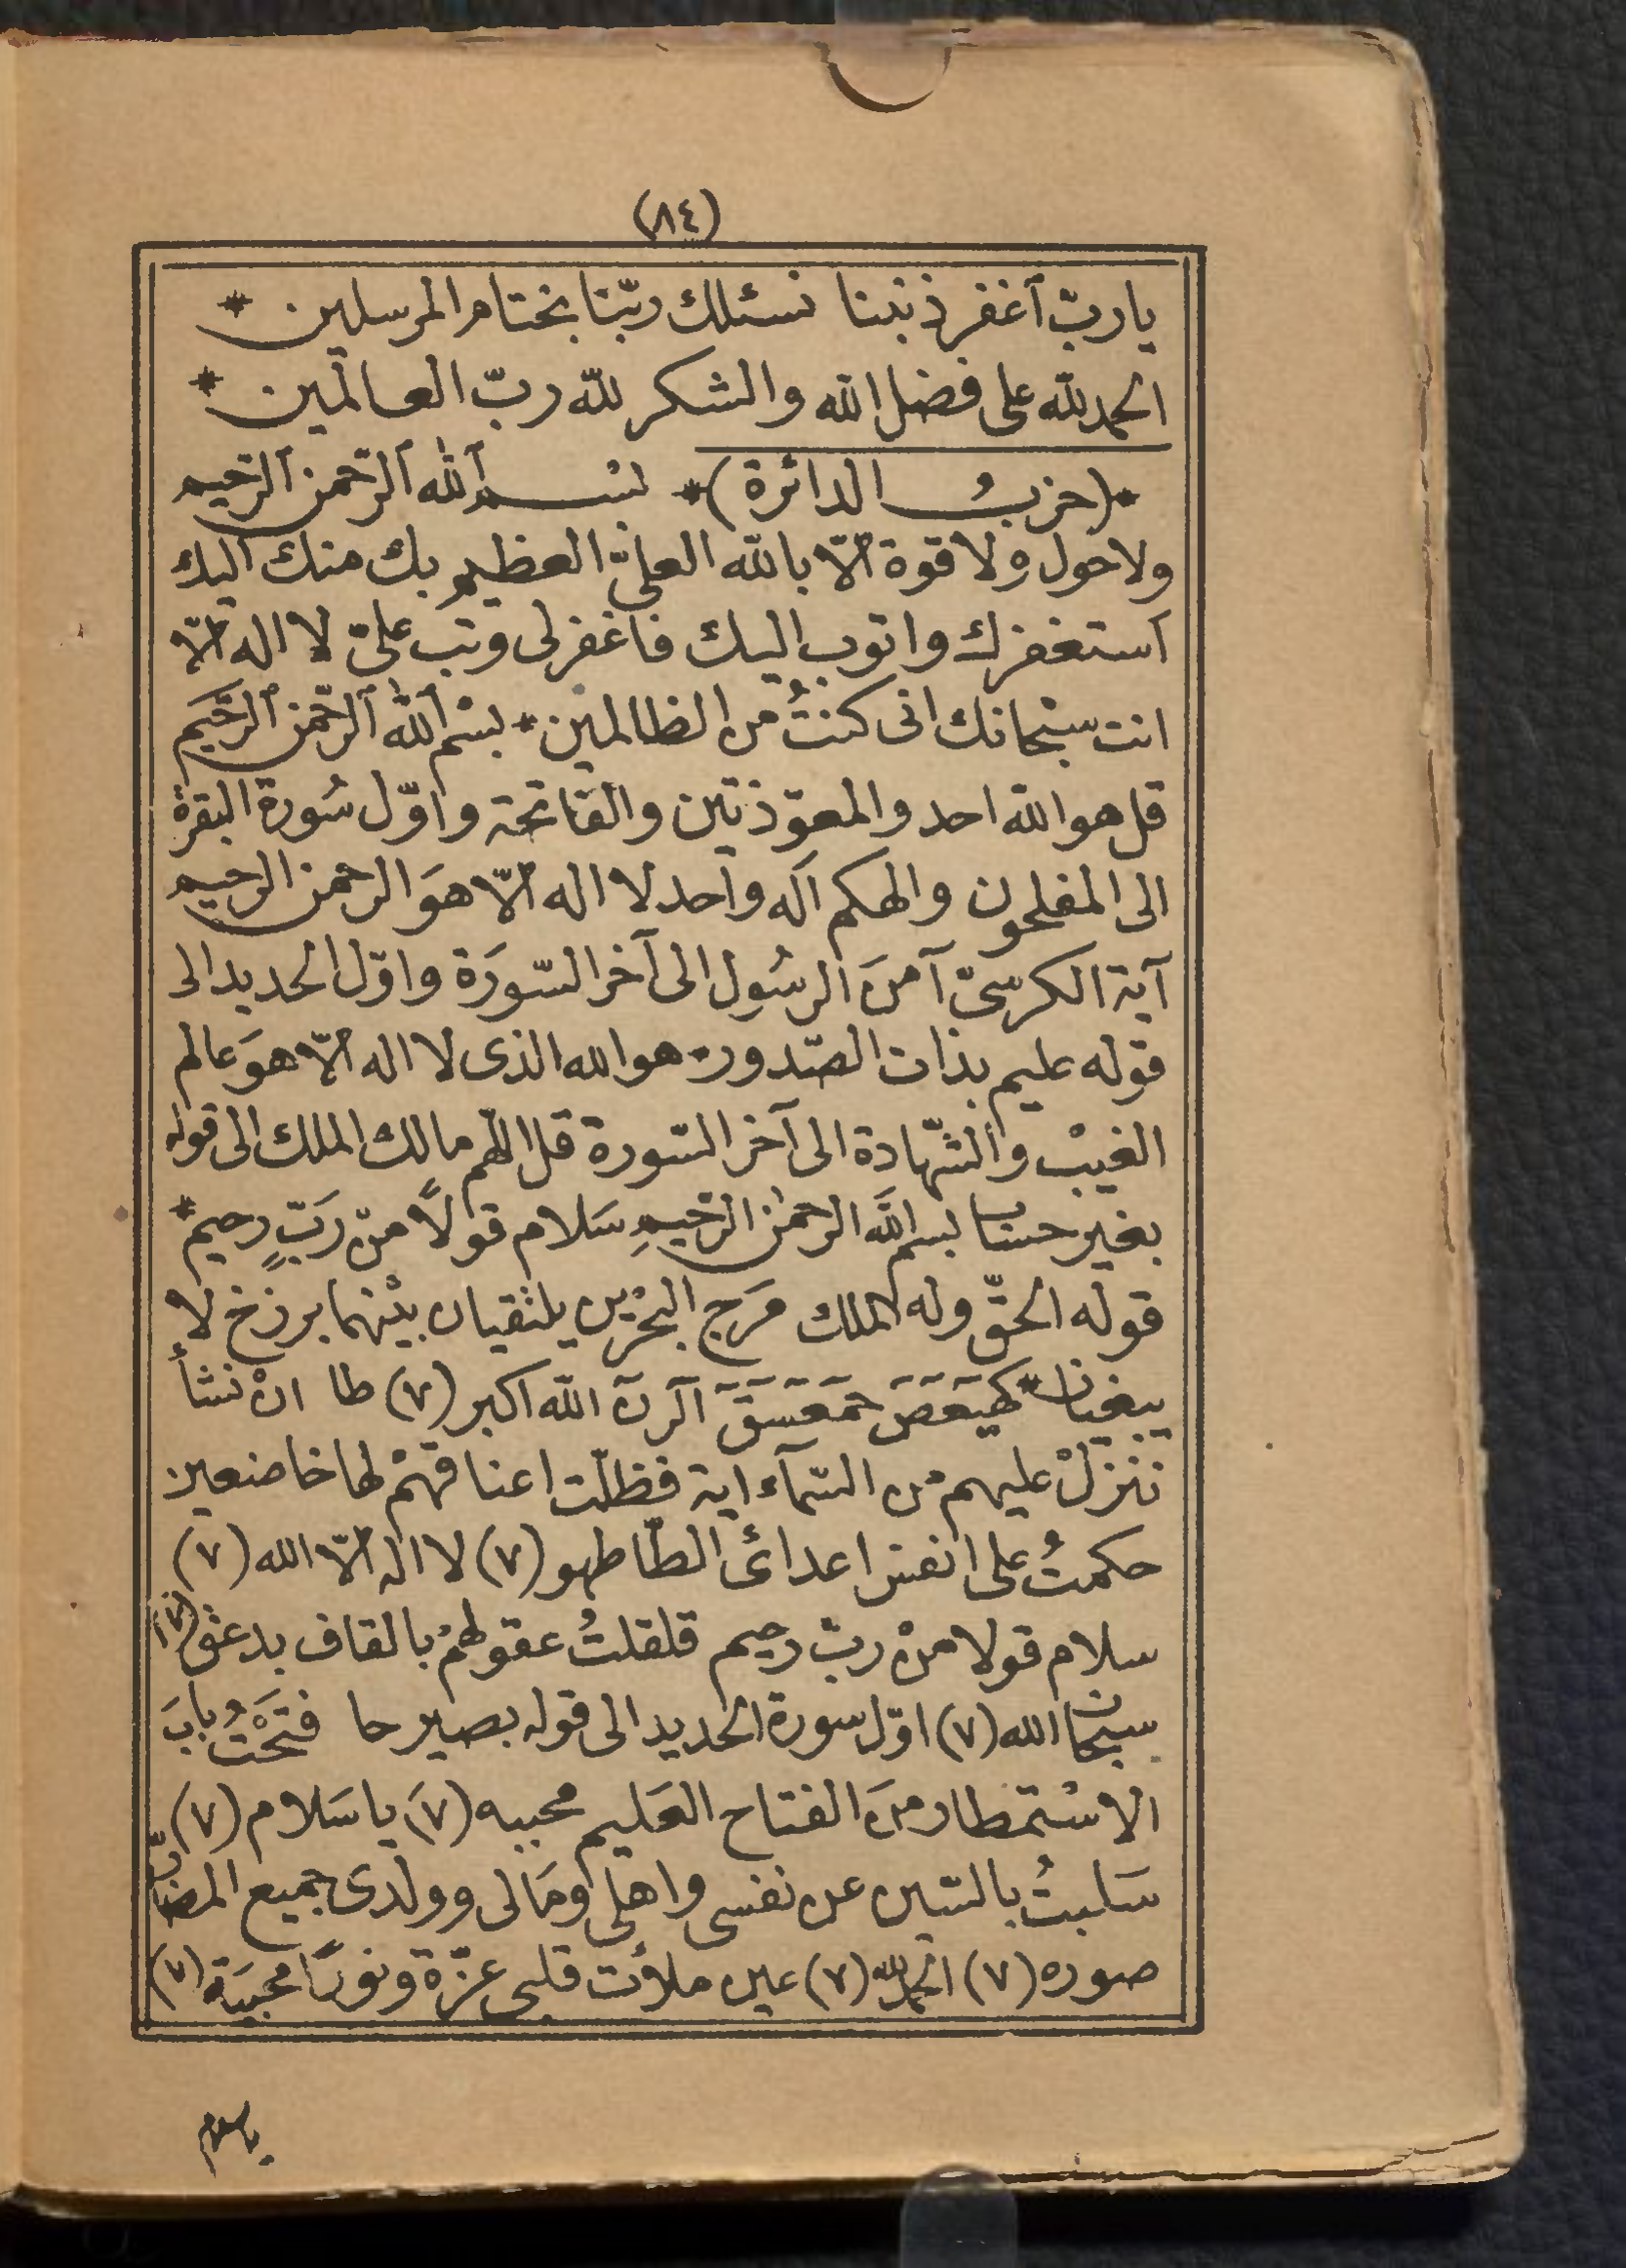 (٨٤)
يا ربّ ٱغفر ذنبنا نسئلك ربّنا بختام المرسلين *
الحمد لله على فضل الله والشكر لله ربّ العالمين *
*(حزبُ الدائرة)* بسم ٱلله ٱلرّحمن ٱلرّحيم
ولا حول ولا قوة الّا بالله العليّ العظيم بك منك اليك
استغفرك واتوب اليك فاغفر لى وتب علىّ لا اله الّا
انت سبحانك انى كنتُ من الظالمين * بسْم ٱلله ٱلرّحمن ٱلرَّحيم
قل هو الله احد والمعوّذتين والفاتحة واوّل سُورة البقرة
الى المفلحون والهكم اله واحد لا اله الّا هوَ الرحمن الرحيم
آية الكرسىّ آمنَ الرسُول الى آخر السّورَة واوّل الحديد الى
قوله عليم بذات الصّدور * هو الله الذى لا اله الّا هوَ عالم
الغيبْ والشّهادة الى آخر السّورة قل اللهم مالك الملك الى قوله
بغير حساب بسم الله الرحمٰن الرّحيمِ سَلام قولًا منْ رَبٍّ رحيم *
قوله الحقّ وله الملك مَرَج البحْرين يلتقيان بيْنهما برزخ لا
يبغيان * كهيَعَصَ حمَعَسَقَ الٓرن الله اكبر (٧) طا انْ نشأْ
ننزلْ عليهم من السّمآء اية فظلّت اعناقهمْ لها خاضعين
حكمتُ على انفس اعدائى الطّاطهو (٧) لا اله الّا الله (٧)
سلام قولا منْ ربّ رحيم قلقلتُ عقولهمْ بالقاف بدعق (٧)
سبحان الله (٧) اوّل سورة الحديد الى قوله بصير حا فتَحْتُ بابَ
الاسْتمطار منَ الفتاح العَليم محببه (٧) يا سَلام (٧)
سَلبتُ بالسّين عن نفسى واهلى ومَالى وولدى جميع المضارّ
صوره (٧) الحمد لله (٧) عين ملأت قلبى عزّة ونورًا محببَة (٧)
يا سلام